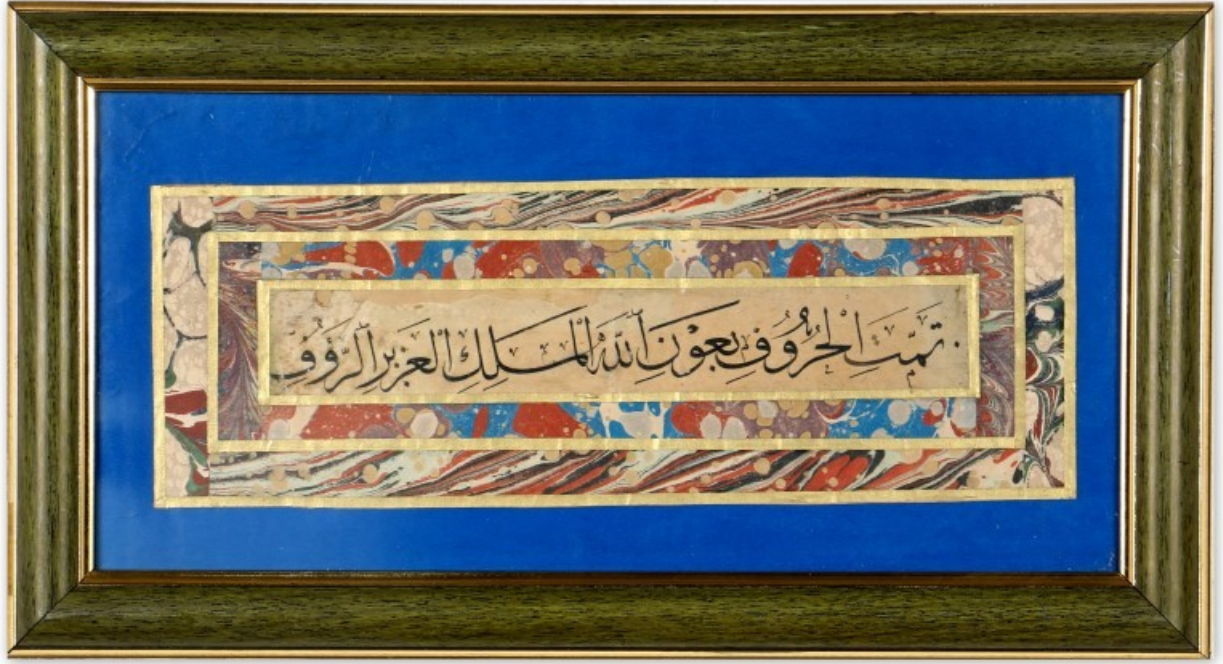 تَمَّتِ الْحُرُوفُ بِعَوْنِ اللّٰهِ الْمَلِكِ الْعَزِيزِ الرَّؤُفِ